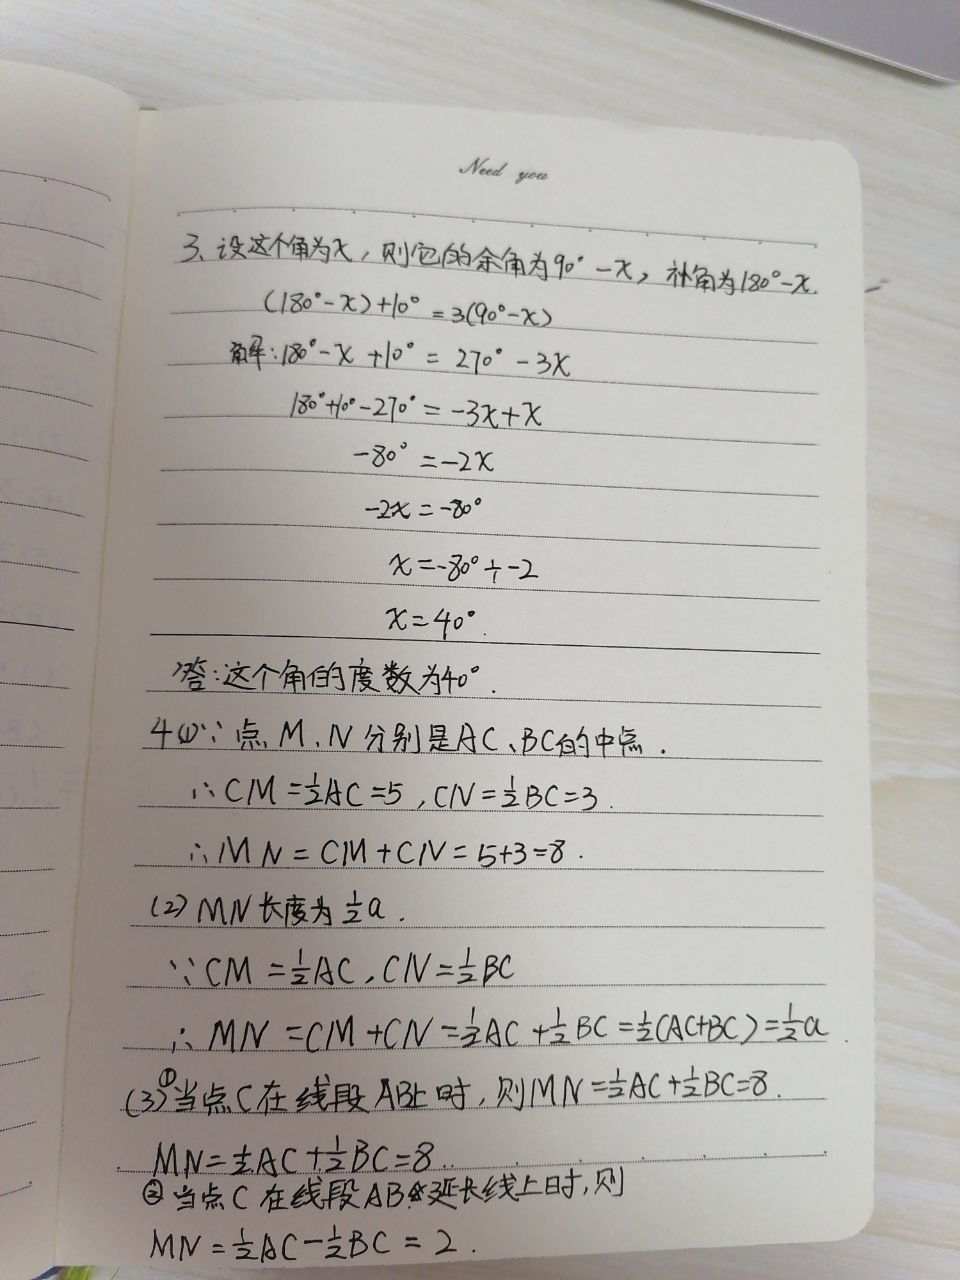 Need you
3、设这个角为x，则它的余角为90°-x，补角为180°-x.
(180°-x)+10°=3(90°-x)
解：180°-x+10°=270°-3x
180°+10°-270°=-3x+x
-80°=-2x
-2x=-80°
x=-80°÷-2
x=40°.
答：这个角的度数为40°.
4(1)∵点M、N分别是AC、BC的中点.
∴CM=½AC=5,CN=½BC=3.
∴MN=CM+CN=5+3=8.
(2)MN长度为½a.
∵CM=½AC,CN=½BC
∴MN=CM+CN=½AC+½BC=½(AC+BC)=½a.
(3)①当点C在线段AB上时,则MN=½AC+½BC=8.
MN=½AC+½BC=8.
②当点C在线段AB延长线上时,则
MN=½AC-½BC=2.